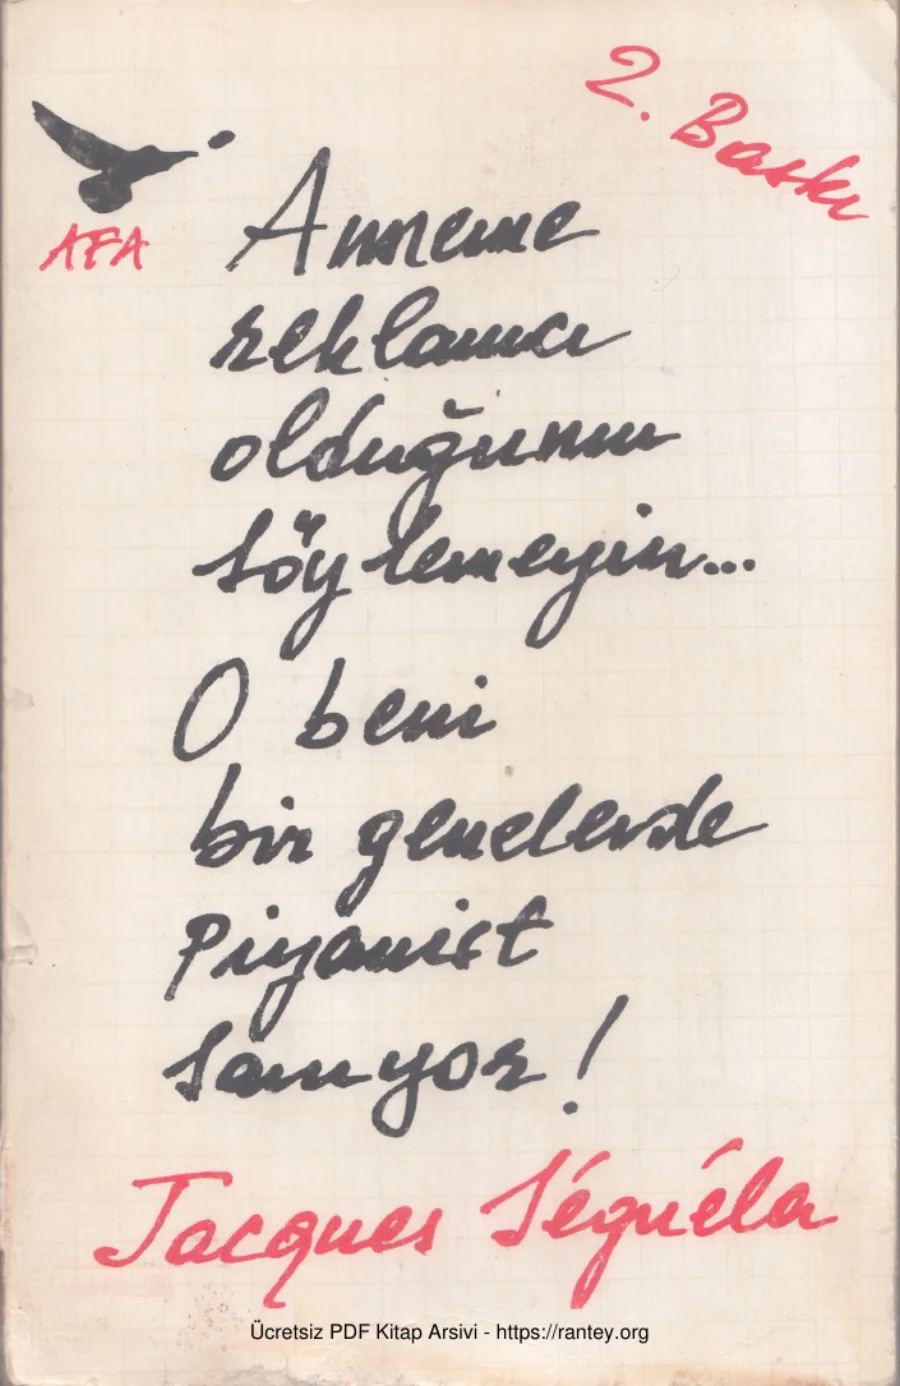 2. Baskı
AFA
Anneme
reklamcı
olduğumu
söylemeyin...
O beni
bir genelevde
Piyanist
sanıyor!
Jacques Séguéla
Ücretsiz PDF Kitap Arsivi - https://rantey.org